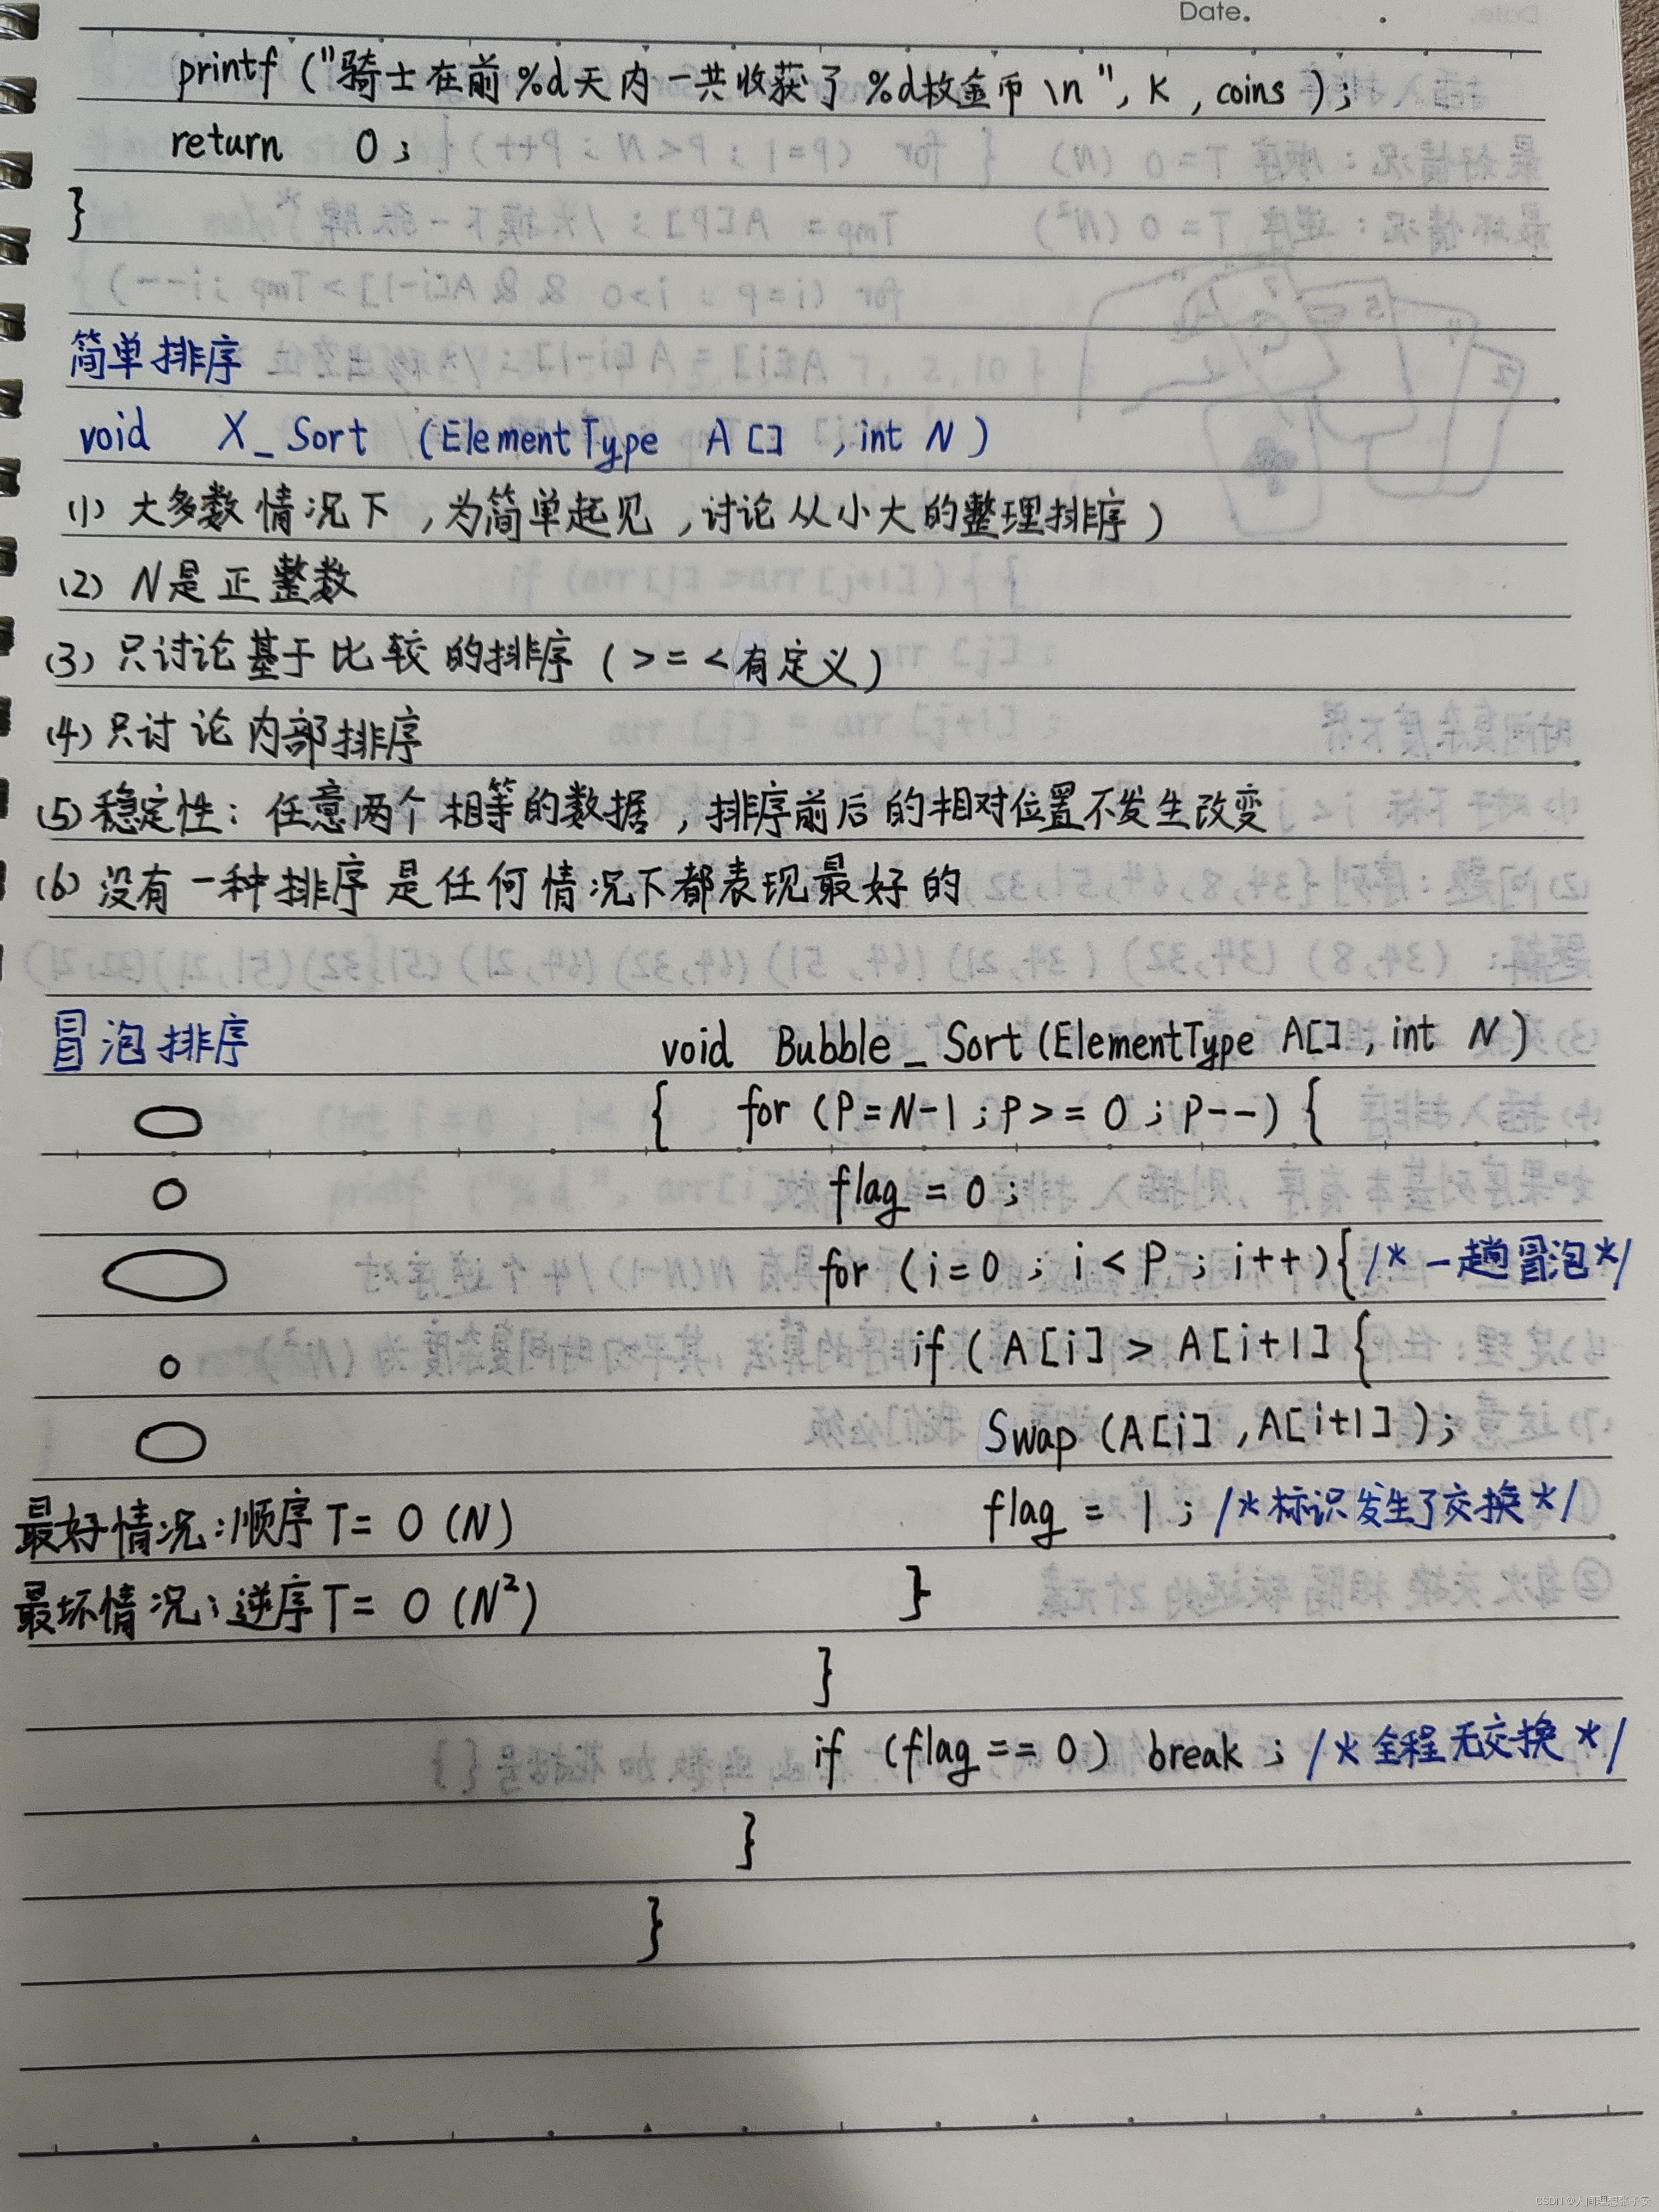 Date.
printf ("骑士在前%d天内一共收获了%d枚金币\n", K, coins);
return 0;
}
简单排序
void X_Sort (ElementType A[], int N)
(1) 大多数情况下,为简单起见,讨论从小大的整理排序)
(2) N是正整数
(3) 只讨论基于比较的排序(>=<有定义)
(4) 只讨论内部排序
(5) 稳定性:任意两个相等的数据,排序前后的相对位置不发生改变
(6) 没有一种排序是任何情况下都表现最好的
冒泡排序
void Bubble_Sort(ElementType A[], int N)
{ for (P=N-1;P>=0;P--) {
flag = 0;
for (i=0; i<P; i++){ /*一趟冒泡*/
if (A[i] > A[i+1] {
Swap (A[i], A[i+1]);
flag = 1; /*标识发生了交换*/
}
}
if (flag == 0) break; /*全程无交换*/
}
}
最好情况:顺序 T= O (N)
最坏情况:逆序 T= O (N²)
CSDN @人间理想张子安